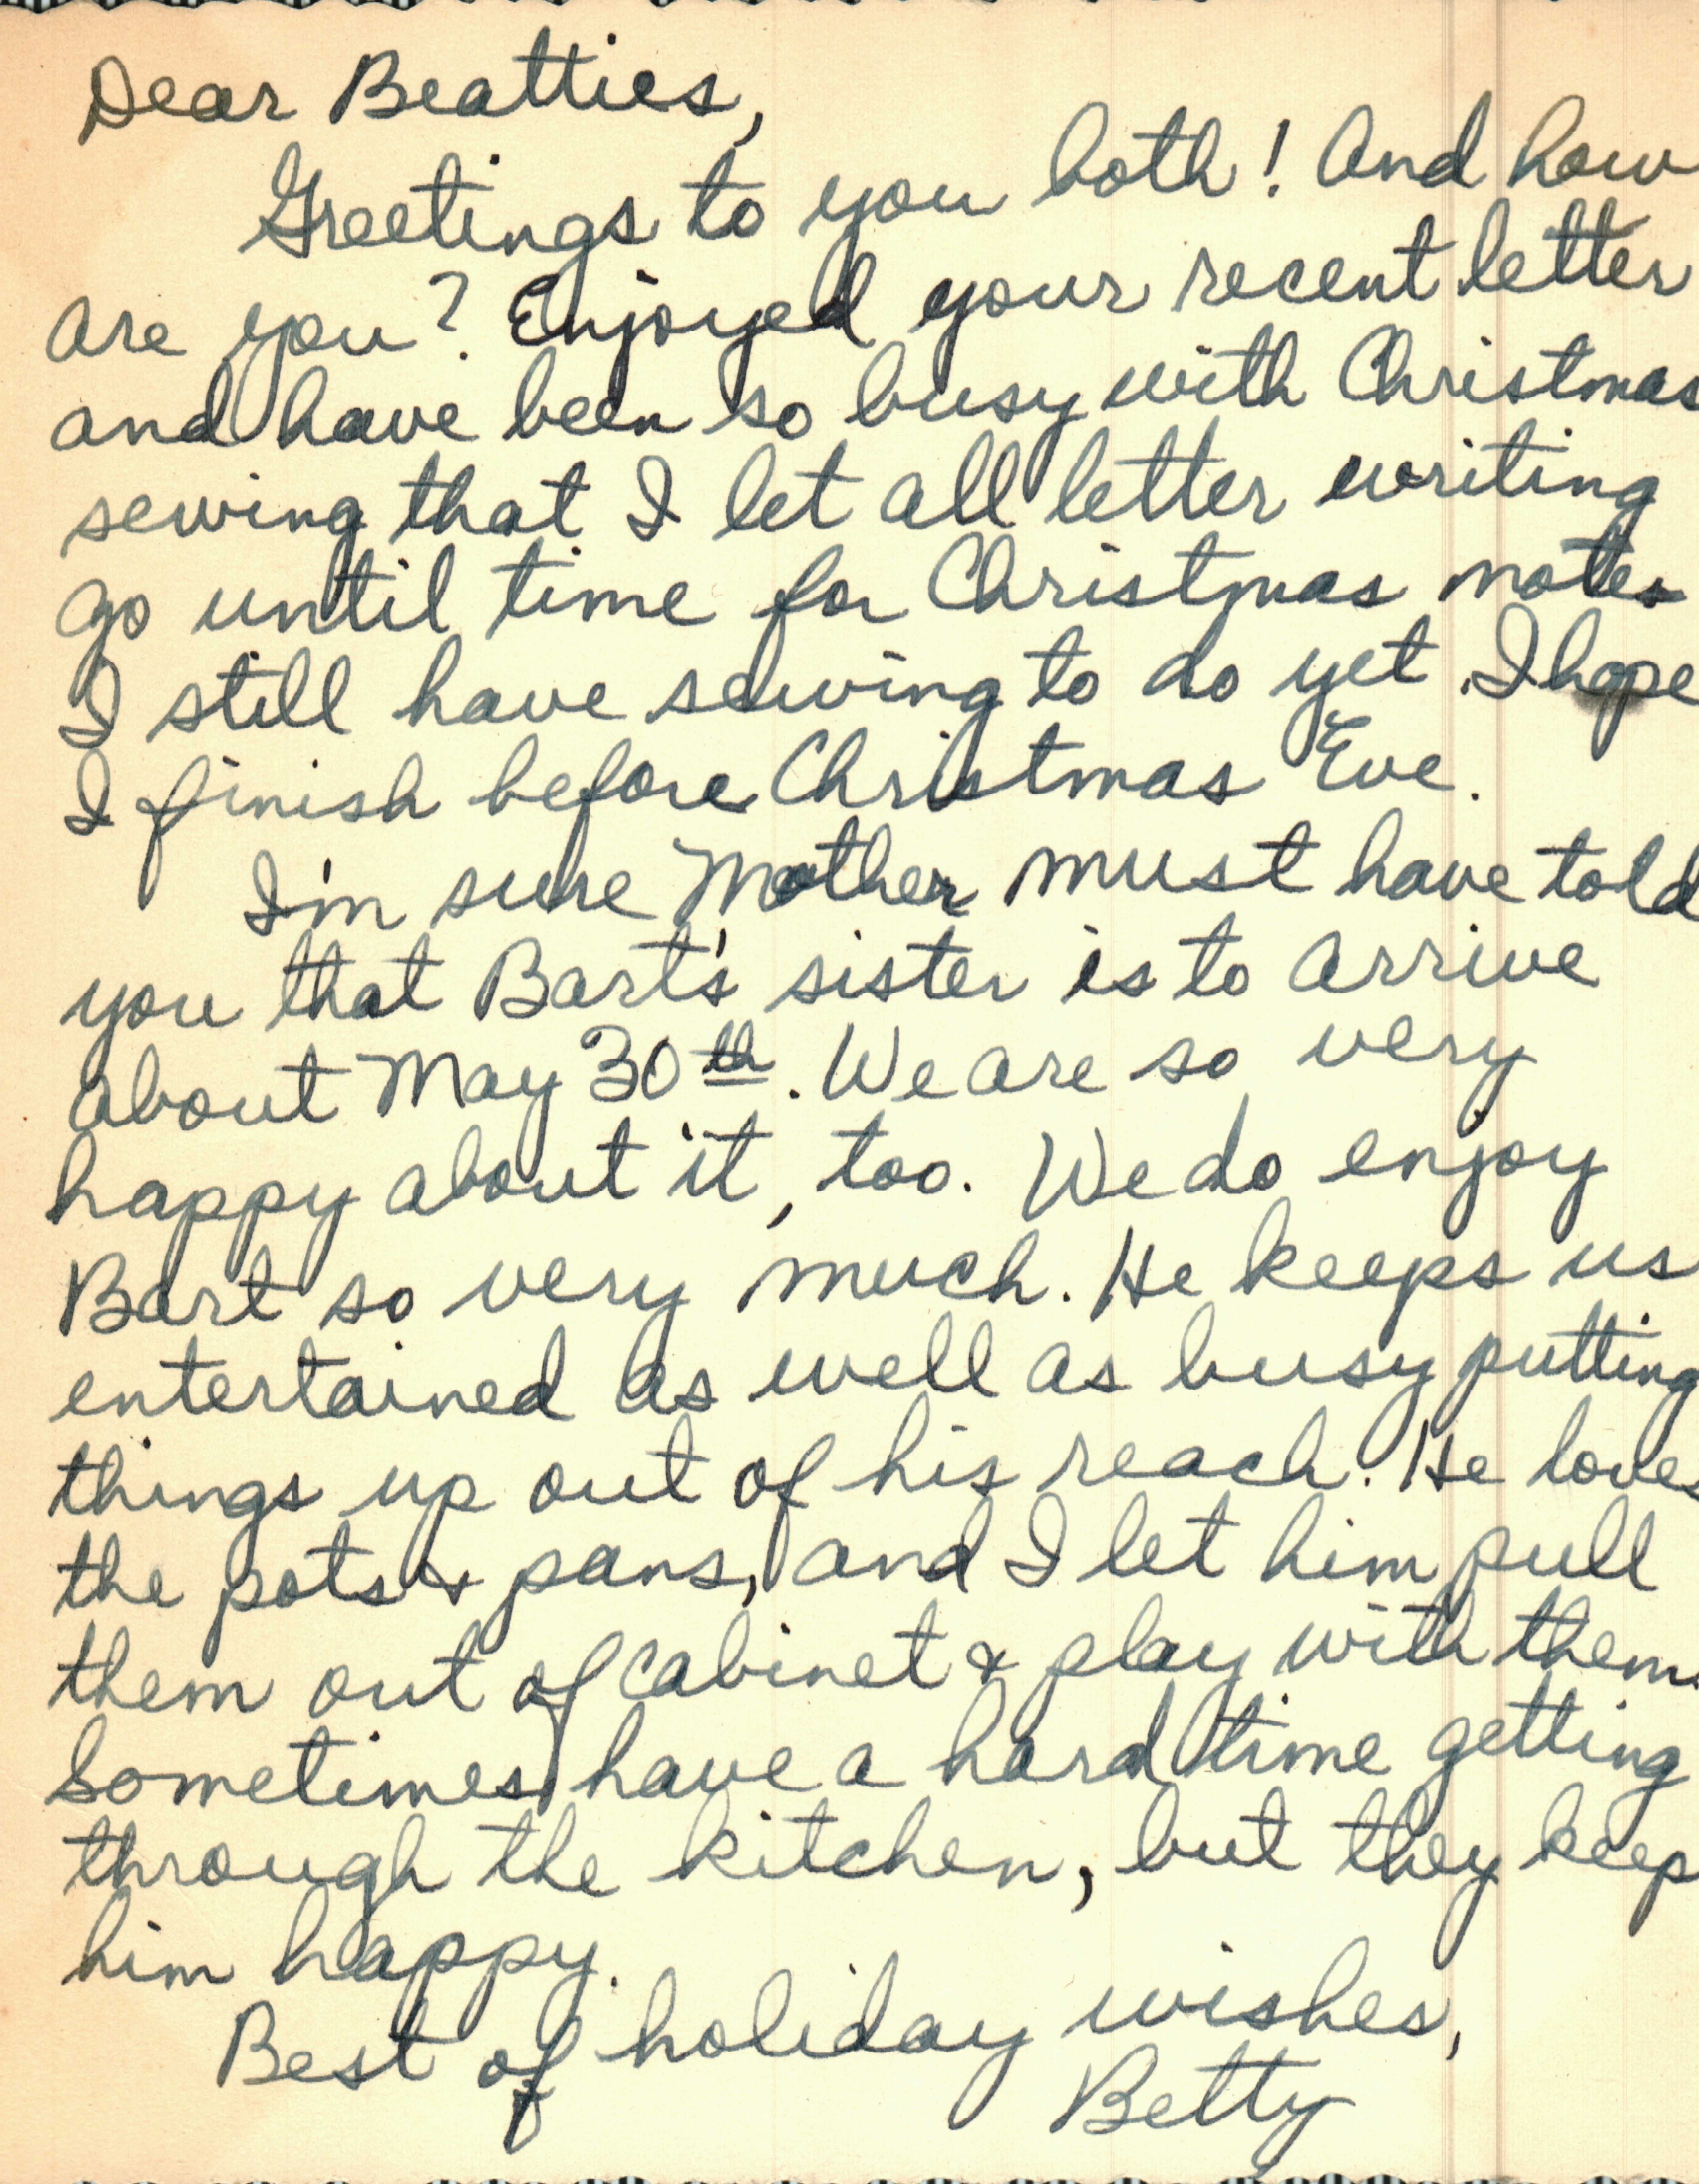 Dear Beatties,
Greetings to you both! And how
are you? Enjoyed your recent letter
and have been so busy with Christmas
sewing that I let all letter writing
go until time for Christmas notes
I still have sewing to do yet. I hope
I finish before Christmas Eve.
I'm sure Mother must have told
you that Bart's sister is to arrive
about May 30th. We are so very
happy about it, too. We do enjoy
Bart so very much. He keeps us
entertained as well as busy putting
things up out of his reach. He loves
the pots & pans, and I let him pull
them out of cabinet & play with them.
Sometimes have a hard time getting
through the kitchen, but they keep
him happy.
Best of holiday wishes,
Betty